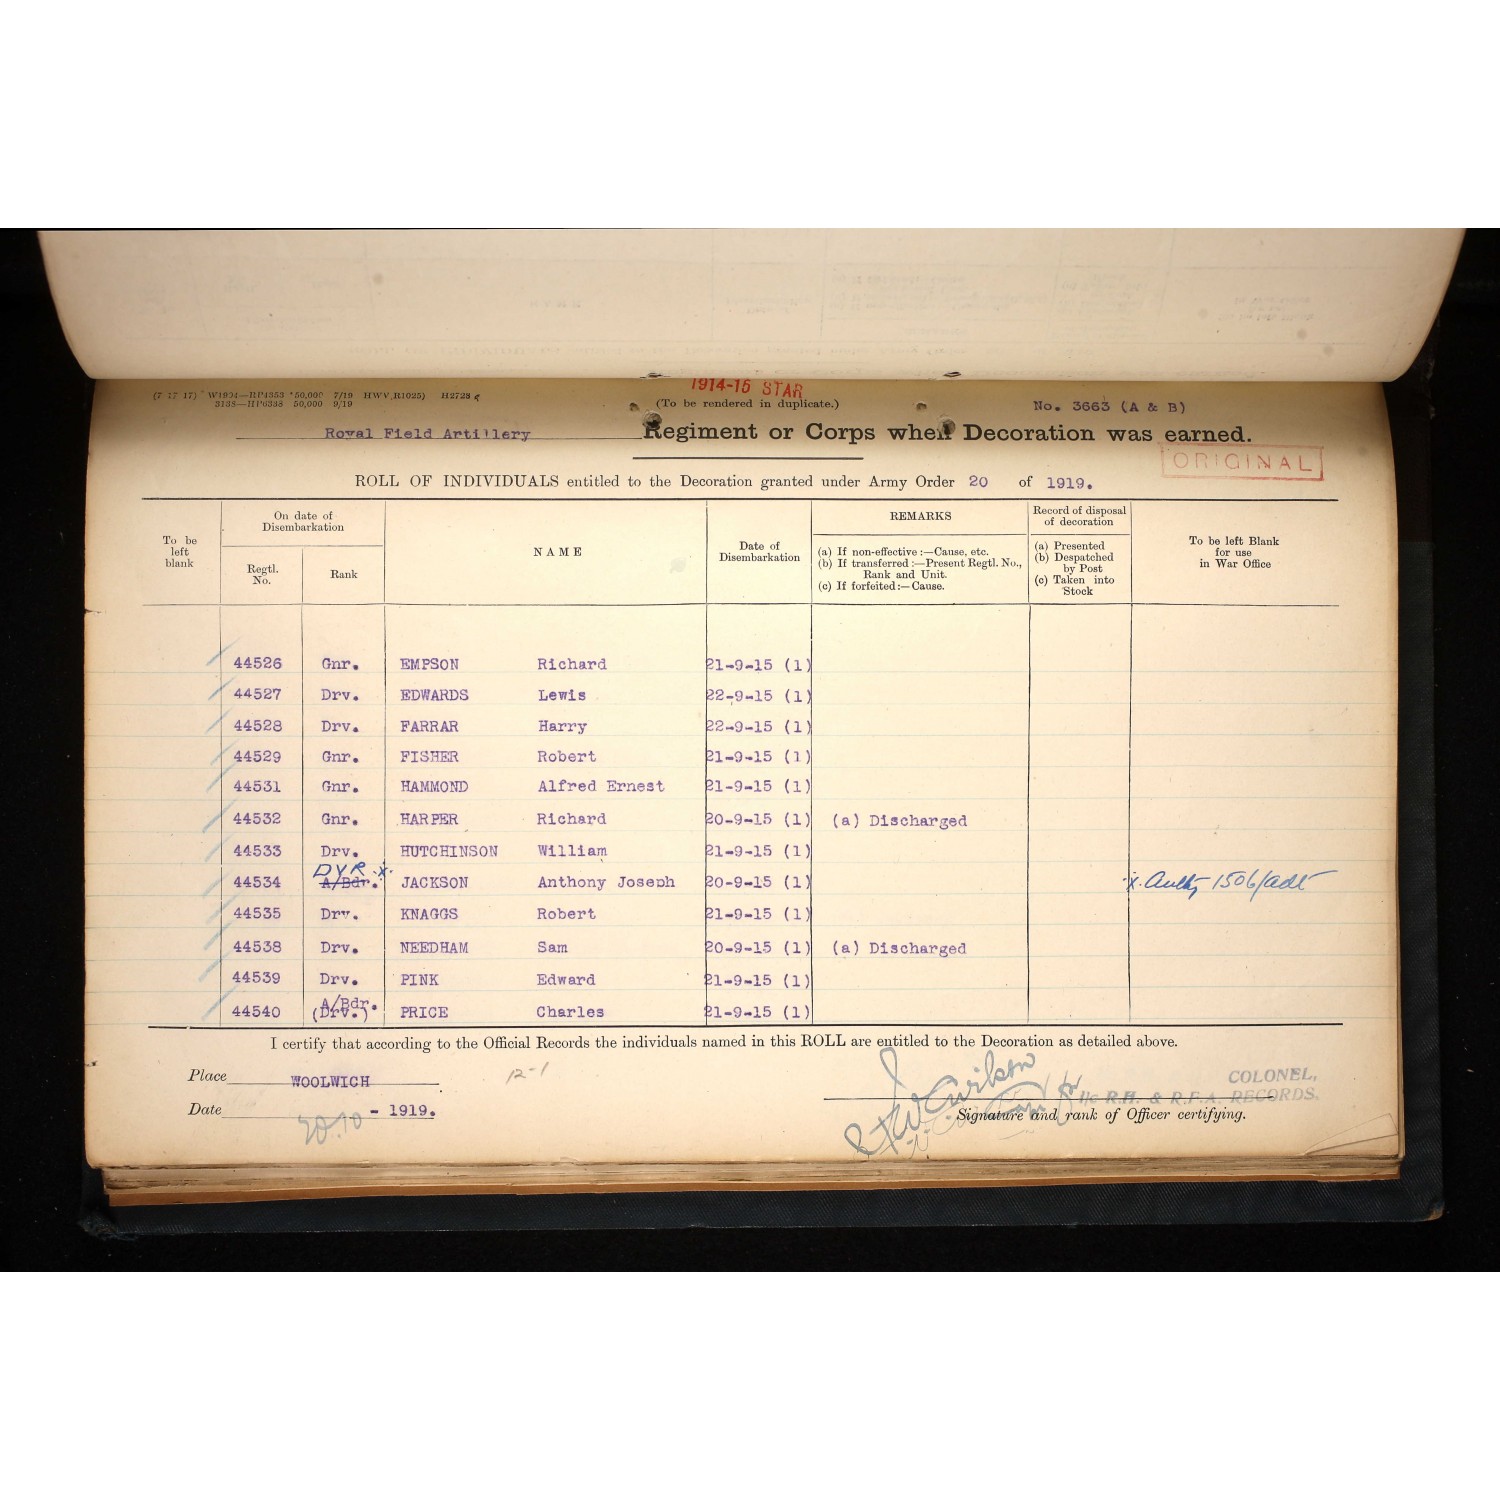 1914-15 STAR
(7 17 17) W1994—HP4353 50,000 7/19 HWV(R1025) H2728
3135—HP6338 50,000 9/19
(To be rendered in duplicate.)
No. 3663 (A & B)
Royal Field Artillery Regiment or Corps when Decoration was earned.
ORIGINAL
ROLL OF INDIVIDUALS entitled to the Decoration granted under Army Order 20 of 1919.
To be left blank
On date of Disembarkation
Regtl. No.
Rank
NAME
Date of Disembarkation
REMARKS
(a) If non-effective:—Cause, etc.
(b) If transferred:—Present Regtl. No., Rank and Unit.
(c) If forfeited:—Cause.
Record of disposal of decoration
(a) Presented
(b) Despatched by Post
(c) Taken into Stock
To be left Blank for use in War Office
44526 Gnr. EMPSON Richard 21-9-15 (1)
44527 Drv. EDWARDS Lewis 22-9-15 (1)
44528 Drv. FARRAR Harry 22-9-15 (1)
44529 Gnr. FISHER Robert 21-9-15 (1)
44531 Gnr. HAMMOND Alfred Ernest 21-9-15 (1)
44532 Gnr. HARPER Richard 20-9-15 (1) (a) Discharged
44533 Drv. HUTCHINSON William 21-9-15 (1)
DVR x
44534 A/Bdr. JACKSON Anthony Joseph 20-9-15 (1) x. Authy 1506/adt
44535 Drv. KNAGGS Robert 21-9-15 (1)
44538 Drv. NEEDHAM Sam 20-9-15 (1) (a) Discharged
44539 Drv. PINK Edward 21-9-15 (1)
A/Bdr.
44540 (Drv.) PRICE Charles 21-9-15 (1)
I certify that according to the Official Records the individuals named in this ROLL are entitled to the Decoration as detailed above.
Place WOOLWICH
12-1
COLONEL,
for I/c R.H. & R.F.A. RECORDS.
Date 20.10 - 1919.
Signature and rank of Officer certifying.